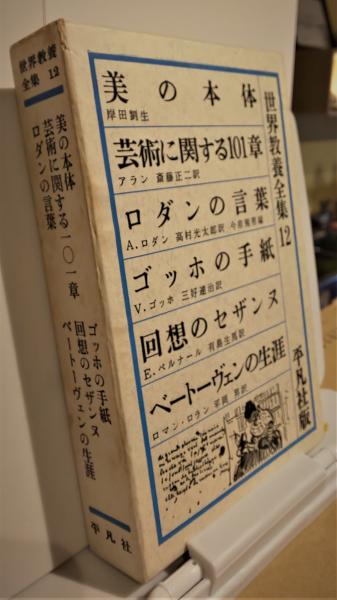 世界教養
全集 12
美の本体
芸術に関する一〇一章
ロダンの言葉
ゴッホの手紙
回想のセザンヌ
ベートーヴェンの生涯
平凡社
美の本体
岸田劉生
芸術に関する101章
アラン 斎藤正二訳
ロダンの言葉
A.ロダン 高村光太郎訳
ゴッホの手紙
V.ゴッホ 三好達治訳
回想のセザンヌ
E.ベルナール 有島生馬訳
ベートーヴェンの生涯
ロマン・ロラン 平岡 昇訳
世界教養全集 12
平凡社版